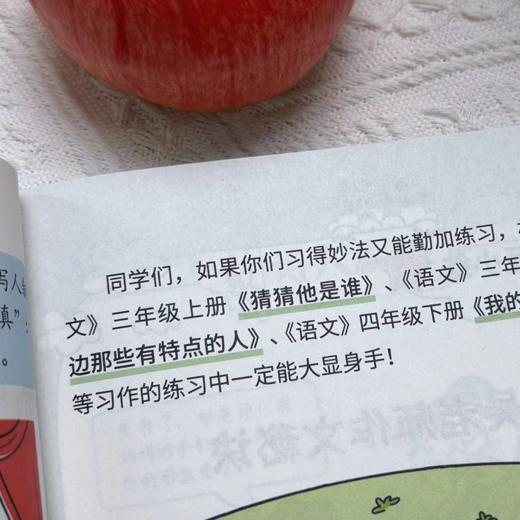 同学们，如果你们习得妙法又能勤加练习，
文》三年级上册《猜猜他是谁》、《语文》三年
边那些有特点的人》、《语文》四年级下册《我的
等习作的练习中一定能大显身手！
写人
真”
。